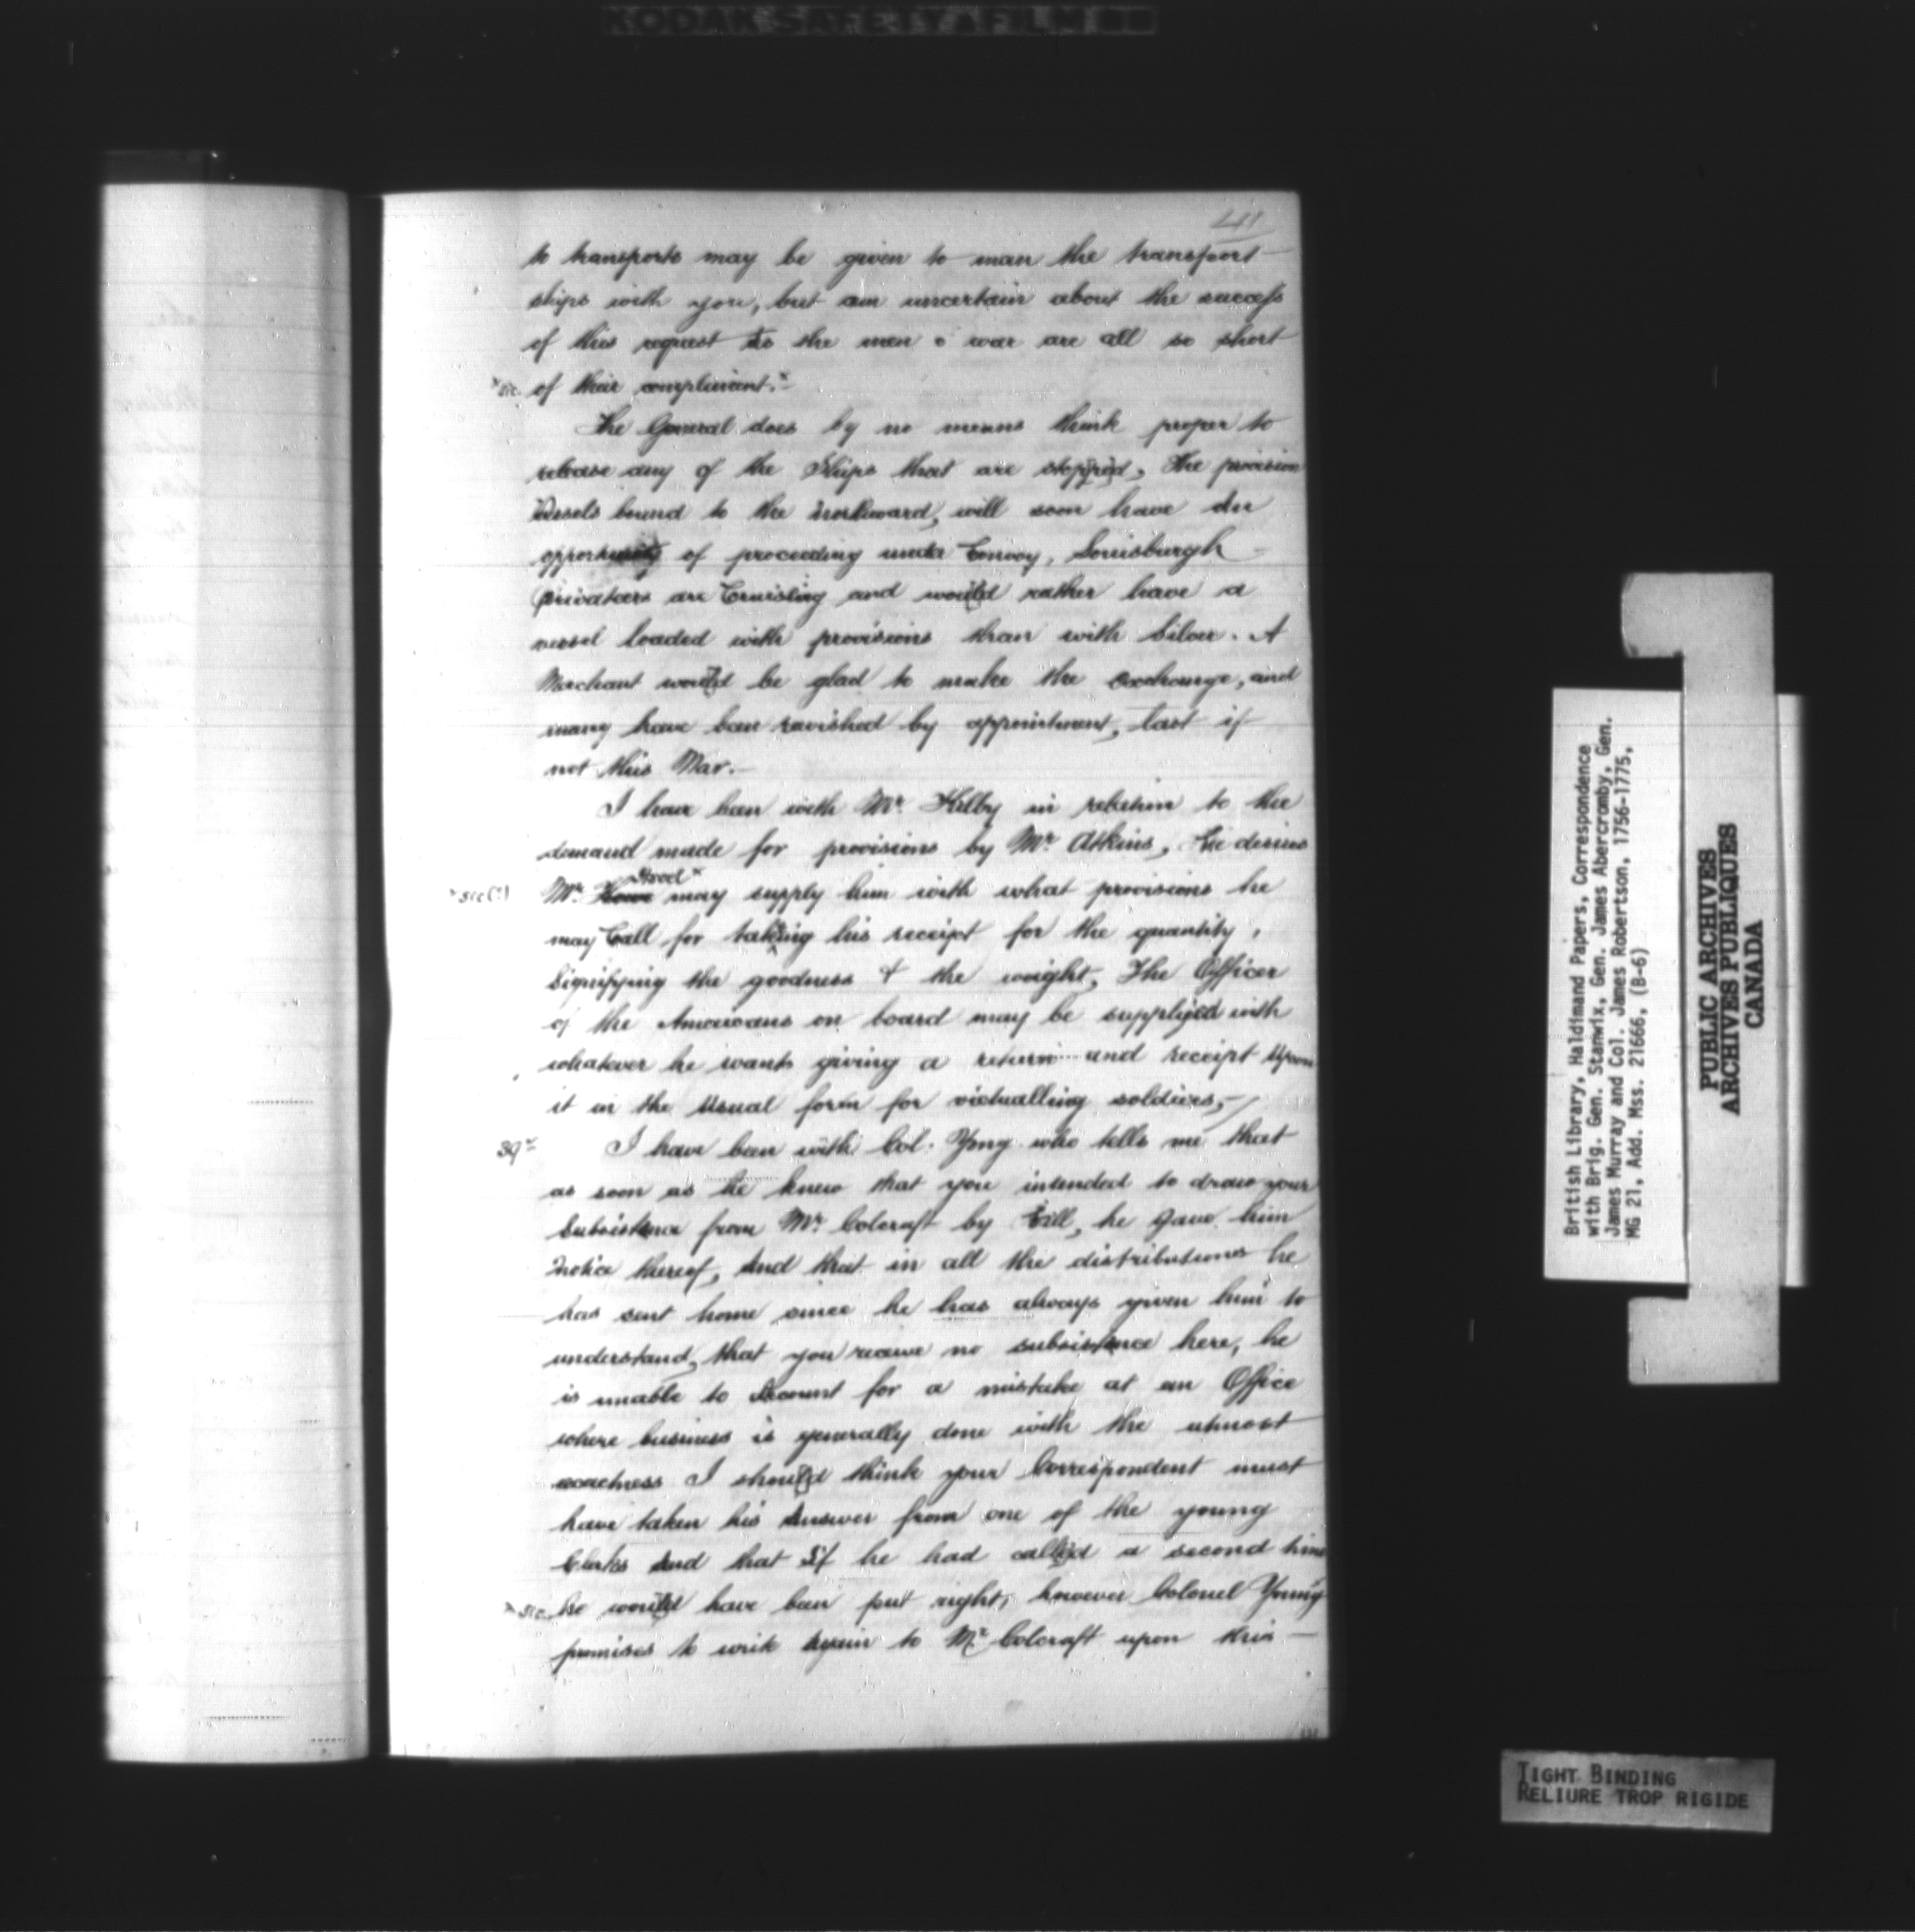 KODAK SAFETY FILM
41
to transports may be given to man the transport
ships with you, but am uncertain about the success
of this request As the men o war are all so short
*sic. of their complimant.*
The General does by no means think proper to
release any of the Ships that are stopped, The provision
Vessels bound to the Northward, will soon have An
opportunity of proceeding under Convoy, Louisburgh
privateers are Cruising and would rather have a
vessel loaded with provisions than with Silver. A
Merchant would be glad to make the exchange, and
many have been ravished by appointment, last if
not this War.
I have been with Mr. Kilby in relation to the
demand made for provisions by Mr. Atkins, he desires
*sic(?) Mr. Stood* may supply him with what provisions he
may Call for taking his receipt for the quantity,
Signifying the goodness & the weight, The Officer
of the Americans on board may be supplied with
whatever he wants giving a return and receipt Upon
it in the Usual form for victualling soldiers,
39 I have been with Col. Yong who tells me that
as soon as he knew that you intended to draw your
Subsistence from Mr. Colcraft by Bill, he gave him
Notice thereof, And that in all the distributions he
has sent home since he has always given him to
understand, that you receive no subsistence here, he
is unable to Account for a mistake at an Office
where business is generally done with the utmost
exactness I should think your Correspondent must
have taken his Answer from one of the young
Clerks And that If he had called a second time
*sic. he would have been put right, however Colonel Young
promises to write Again to Mr. Colcraft upon this
British Library, Haldimand Papers, Correspondence
with Brig. Gen. Stanwix, Gen. James Abercromby, Gen.
James Murray and Col. James Robertson, 1756-1775,
MG 21, Add. Mss. 21666, (B-6)
PUBLIC ARCHIVES
ARCHIVES PUBLIQUES
CANADA
TIGHT BINDING
RELIURE TROP RIGIDE